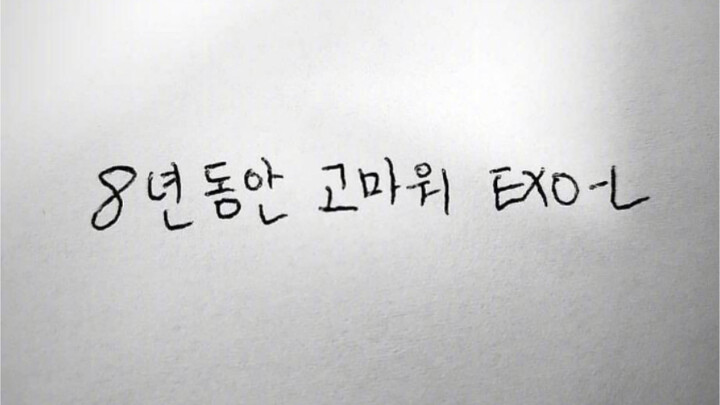 8년동안 고마워 EXO-L